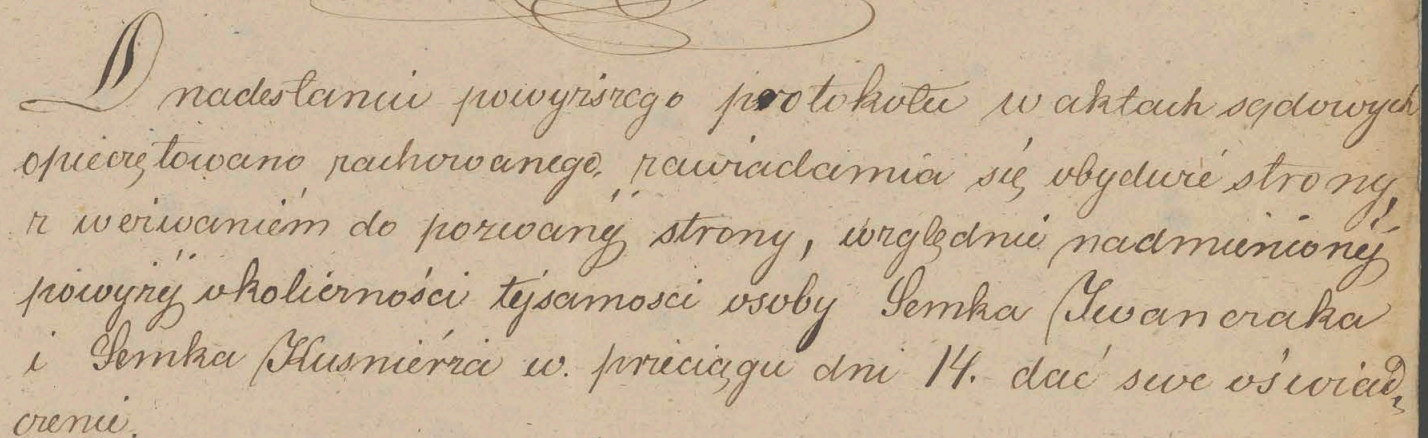 O nadesłaniu powyższego protokołu w aktach sądowych
opieczętowano zachowanego, zawiadamia się obydwie strony,
z wezwaniém do pozwanÿ strony, względnie nadmienionÿ
powyżÿ okolicznóści tÿsamosci osoby Semka Iwanczaka
i Semka Kusniérza w. przeciągu dni 14. dać swe oświad„
czenie.